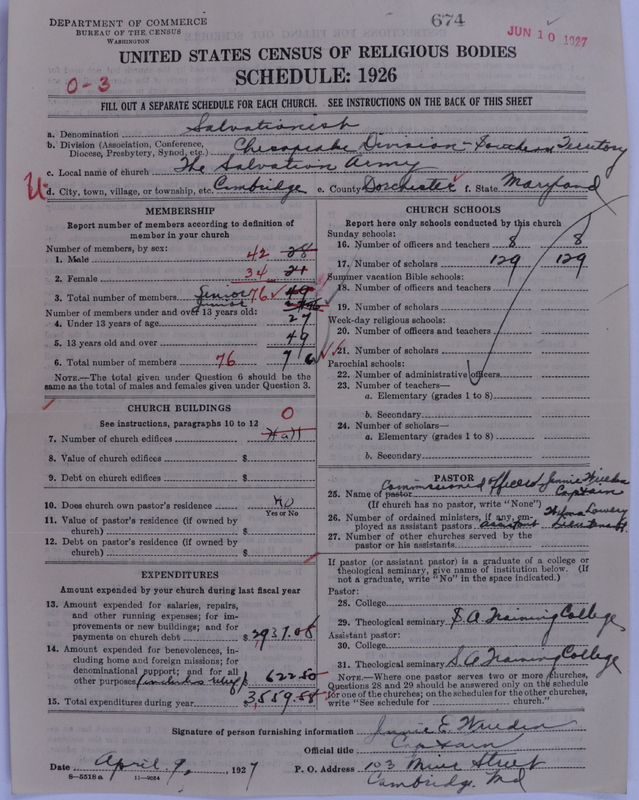 674
DEPARTMENT OF COMMERCE
BUREAU OF THE CENSUS
WASHINGTON
JUN 10 1927
UNITED STATES CENSUS OF RELIGIOUS BODIES
SCHEDULE: 1926
0-3
FILL OUT A SEPARATE SCHEDULE FOR EACH CHURCH. SEE INSTRUCTIONS ON THE BACK OF THIS SHEET
a. Denomination Salvationist
b. Division (Association, Conference, Diocese, Presbytery, Synod, etc.) Chesapeake Division - Southern Territory
c. Local name of church The Salvation Army
U d. City, town, village, or township, etc. Cambridge e. County Dorchester f. State Maryland
MEMBERSHIP
Report number of members according to definition of
member in your church
Number of members, by sex:
1. Male 42 28
2. Female 34 21
3. Total number of members Senior 76 49
Junior
Number of members under and over 13 years old:
4. Under 13 years of age 27
5. 13 years old and over 49
6. Total number of members 76 76
NOTE.—The total given under Question 6 should be the
same as the total of males and females given under Question 3.
CHURCH BUILDINGS
See instructions, paragraphs 10 to 12
0
7. Number of church edifices Hall
8. Value of church edifices $
9. Debt on church edifices $
10. Does church own pastor's residence No
Yes or No
11. Value of pastor's residence (if owned by
church) $
12. Debt on pastor's residence (if owned by
church) $
EXPENDITURES
Amount expended by your church during last fiscal year
13. Amount expended for salaries, repairs,
and other running expenses; for im-
provements or new buildings; and for
payments on church debt $ 2937.08
14. Amount expended for benevolences, in-
cluding home and foreign missions; for
denominational support; and for all
other purposes (includes relief) 622.50
15. Total expenditures during year $ 3,559.58
CHURCH SCHOOLS
Report here only schools conducted by this church
Sunday schools:
16. Number of officers and teachers 8 8
17. Number of scholars 129 129
Summer vacation Bible schools:
18. Number of officers and teachers
19. Number of scholars
Week-day religious schools:
20. Number of officers and teachers
21. Number of scholars
Parochial schools:
22. Number of administrative officers
23. Number of teachers—
a. Elementary (grades 1 to 8)
b. Secondary
24. Number of scholars—
a. Elementary (grades 1 to 8)
b. Secondary
PASTOR
Commissioned Officers Jennie
25. Name of pastor Captain
(If church has no pastor, write "None")
26. Number of ordained ministers, if any, em-
ployed as assistant pastors Assistant Lowery Lieutenant
27. Number of other churches served by the
pastor or his assistants
If pastor (or assistant pastor) is a graduate of a college or
theological seminary, give name of institution below. (If
not a graduate, write "No" in the space indicated.)
Pastor:
28. College
29. Theological seminary S. A Training College
Assistant pastor:
30. College
31. Theological seminary S. A Training College
NOTE.—Where one pastor serves two or more churches,
Questions 28 and 29 should be answered only on the schedule
for one of the churches; on the schedules for the other churches,
write "See schedule for church."
Signature of person furnishing information Jennie E.
Official title Captain
Date April 9, 1927 P. O. Address 103 Street
8-5518 a 11-9024 Cambridge Md